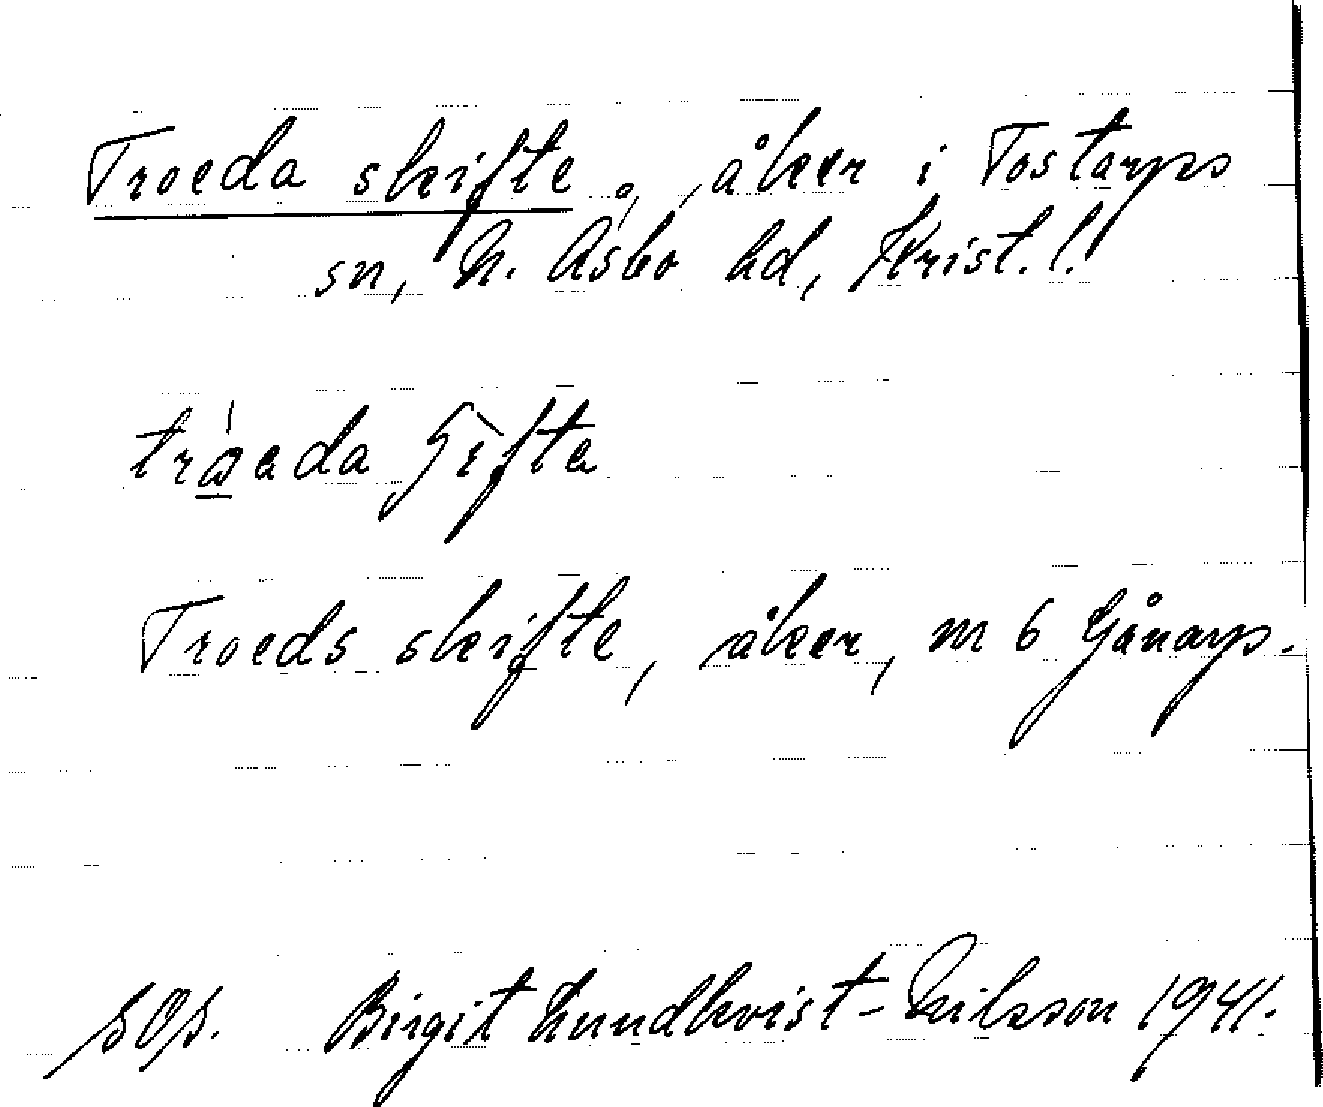 Troeda skifte, åker i Tostarps
sn, N. Åsbo hd, Krist. l.
Troeds skifte, åker, m 6 Gånarp.
Birgit Lundkvist-Nilsson 1941.